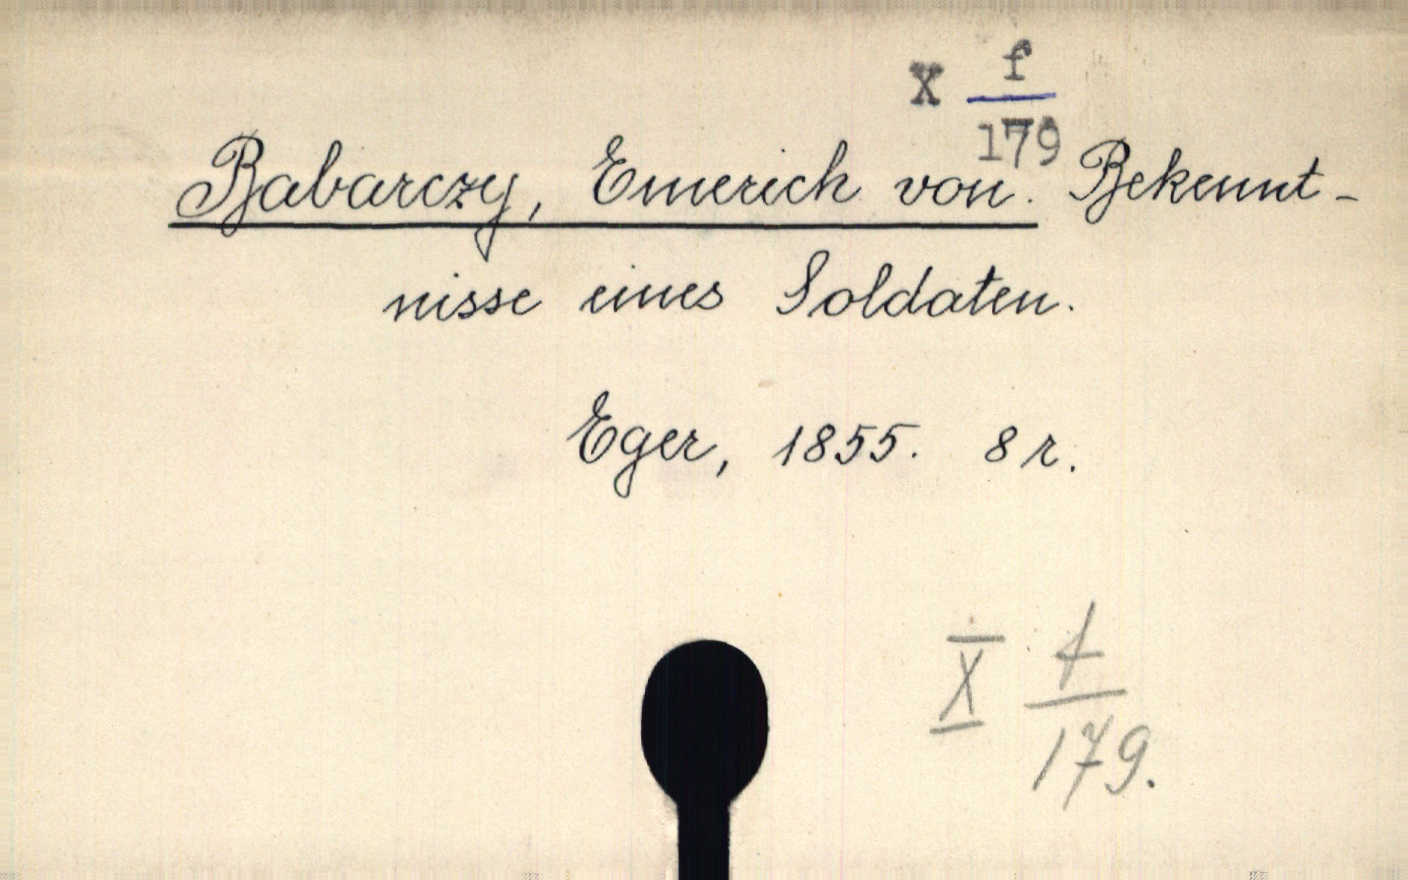 X f
179
Babarczy, Emerich von. Bekennt-
nisse eines Soldaten.
Eger, 1855. 8 r.
X f
179.